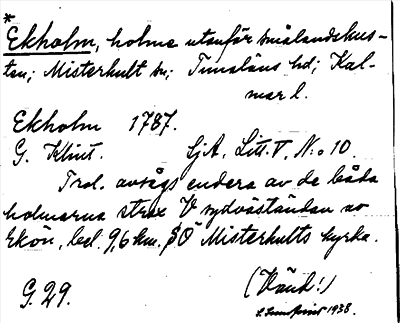 *
Ekholm, holme utanför smålandskus-
ten; Misterhult sn; Tunaläns hd; Kal-
mar l.
Ekholm 1787.
G. Klint. SjA, Litt. V, N:o 10.
Trol. avsågs endera av de båda
holmarna strax V sydväständan av
Ekön, bel. 9,6 km. SO Misterhults kyrka.
G. 29.
(Vänd!)
1938.